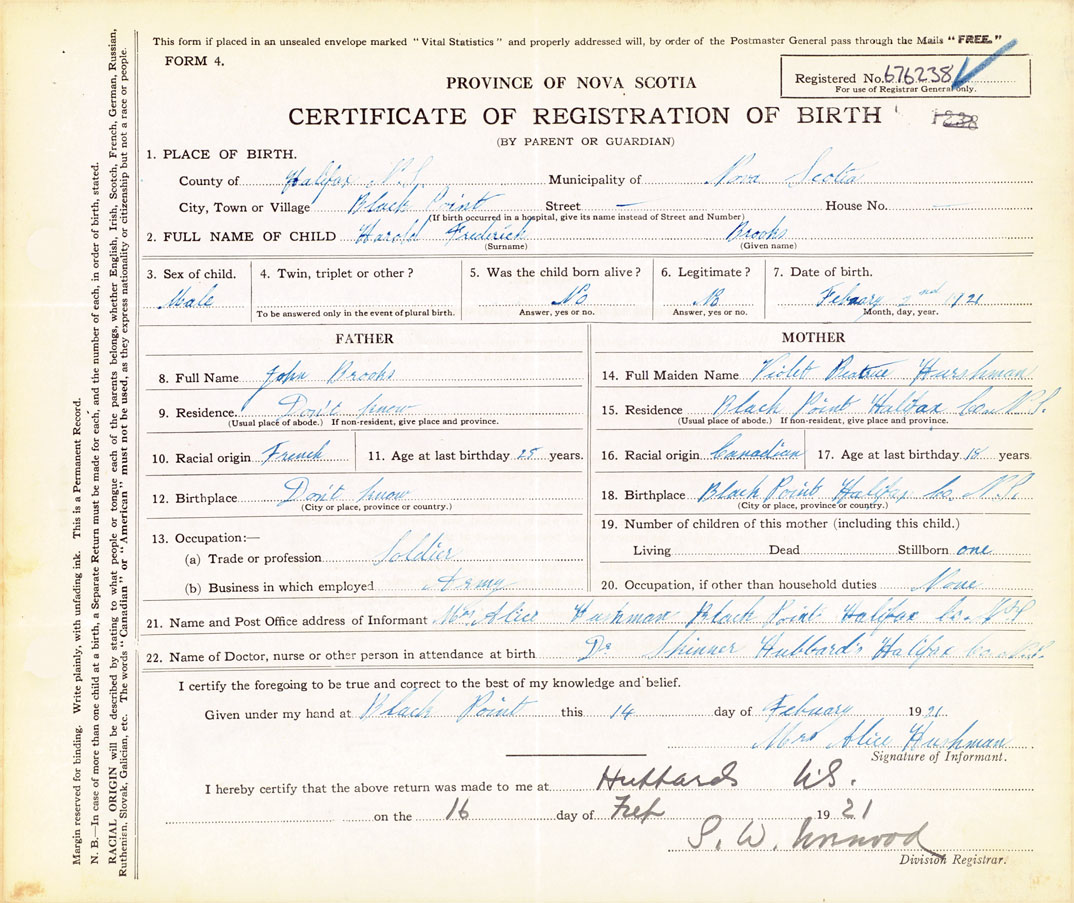 This form if placed in an unsealed envelope marked "Vital Statistics" and properly addressed will, by order of the Postmaster General pass through the Mails "FREE."
FORM 4.
Registered No. 676238
For use of Registrar General only.
PROVINCE OF NOVA SCOTIA
CERTIFICATE OF REGISTRATION OF BIRTH
1238
(BY PARENT OR GUARDIAN)
1. PLACE OF BIRTH.
County of Halifax N.S. Municipality of Nova Scotia
City, Town or Village Black Point Street — House No. —
(If birth occurred in a hospital, give its name instead of Street and Number)
2. FULL NAME OF CHILD Harold Frederick Brooks
(Surname) (Given name)
3. Sex of child. 4. Twin, triplet or other? 5. Was the child born alive? 6. Legitimate? 7. Date of birth.
Male No No Febuary 2nd 1921
To be answered only in the event of plural birth. Answer, yes or no. Answer, yes or no. Month, day, year.
FATHER
8. Full Name John Brooks
9. Residence. Don't know
(Usual place of abode.) If non-resident, give place and province.
10. Racial origin French 11. Age at last birthday 25 years.
12. Birthplace Don't know
(City or place, province or country.)
13. Occupation:—
(a) Trade or profession Soldier
(b) Business in which employed Army
MOTHER
14. Full Maiden Name Violet Beatrice Hurshman
15. Residence Black Point Halifax Co. N.S.
(Usual place of abode.) If non-resident, give place and province.
16. Racial origin Canadian 17. Age at last birthday 18 years
18. Birthplace Black Point Halifax Co. N.S.
(City or place, province or country.)
19. Number of children of this mother (including this child.)
Living Dead Stillborn one
20. Occupation, if other than household duties None
21. Name and Post Office address of Informant Mrs Alice Hushman Black Point Halifax Co. N.S
22. Name of Doctor, nurse or other person in attendance at birth Dr Skinner Hubbards Halifax Co. N.S.
I certify the foregoing to be true and correct to the best of my knowledge and belief.
Given under my hand at Black Point this 14 day of Febuary 1921
Mrs Alice Hushman
Signature of Informant.
I hereby certify that the above return was made to me at Hubbards N.S.
on the 16 day of Feb 1921
S. W.
Division Registrar.
Margin reserved for binding. Write plainly, with unfading ink. This is a Permanent Record.
N. B.—In case of more than one child at a birth, a Separate Return must be made for each, and the number of each, in order of birth, stated.
RACIAL ORIGIN will be described by stating to what people or tongue each of the parents belongs, whether English, Irish, Scotch, French, German, Russian,
Ruthenian, Slovak, Galician, etc. The words "Canadian" or "American" must not be used, as they express nationality or citizenship but not a race or people.